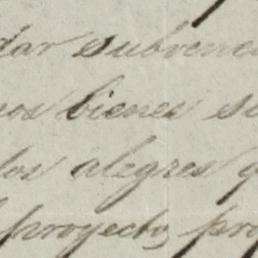 dar subvenci
nos bienes su
los alegres q
l proyecto, pro